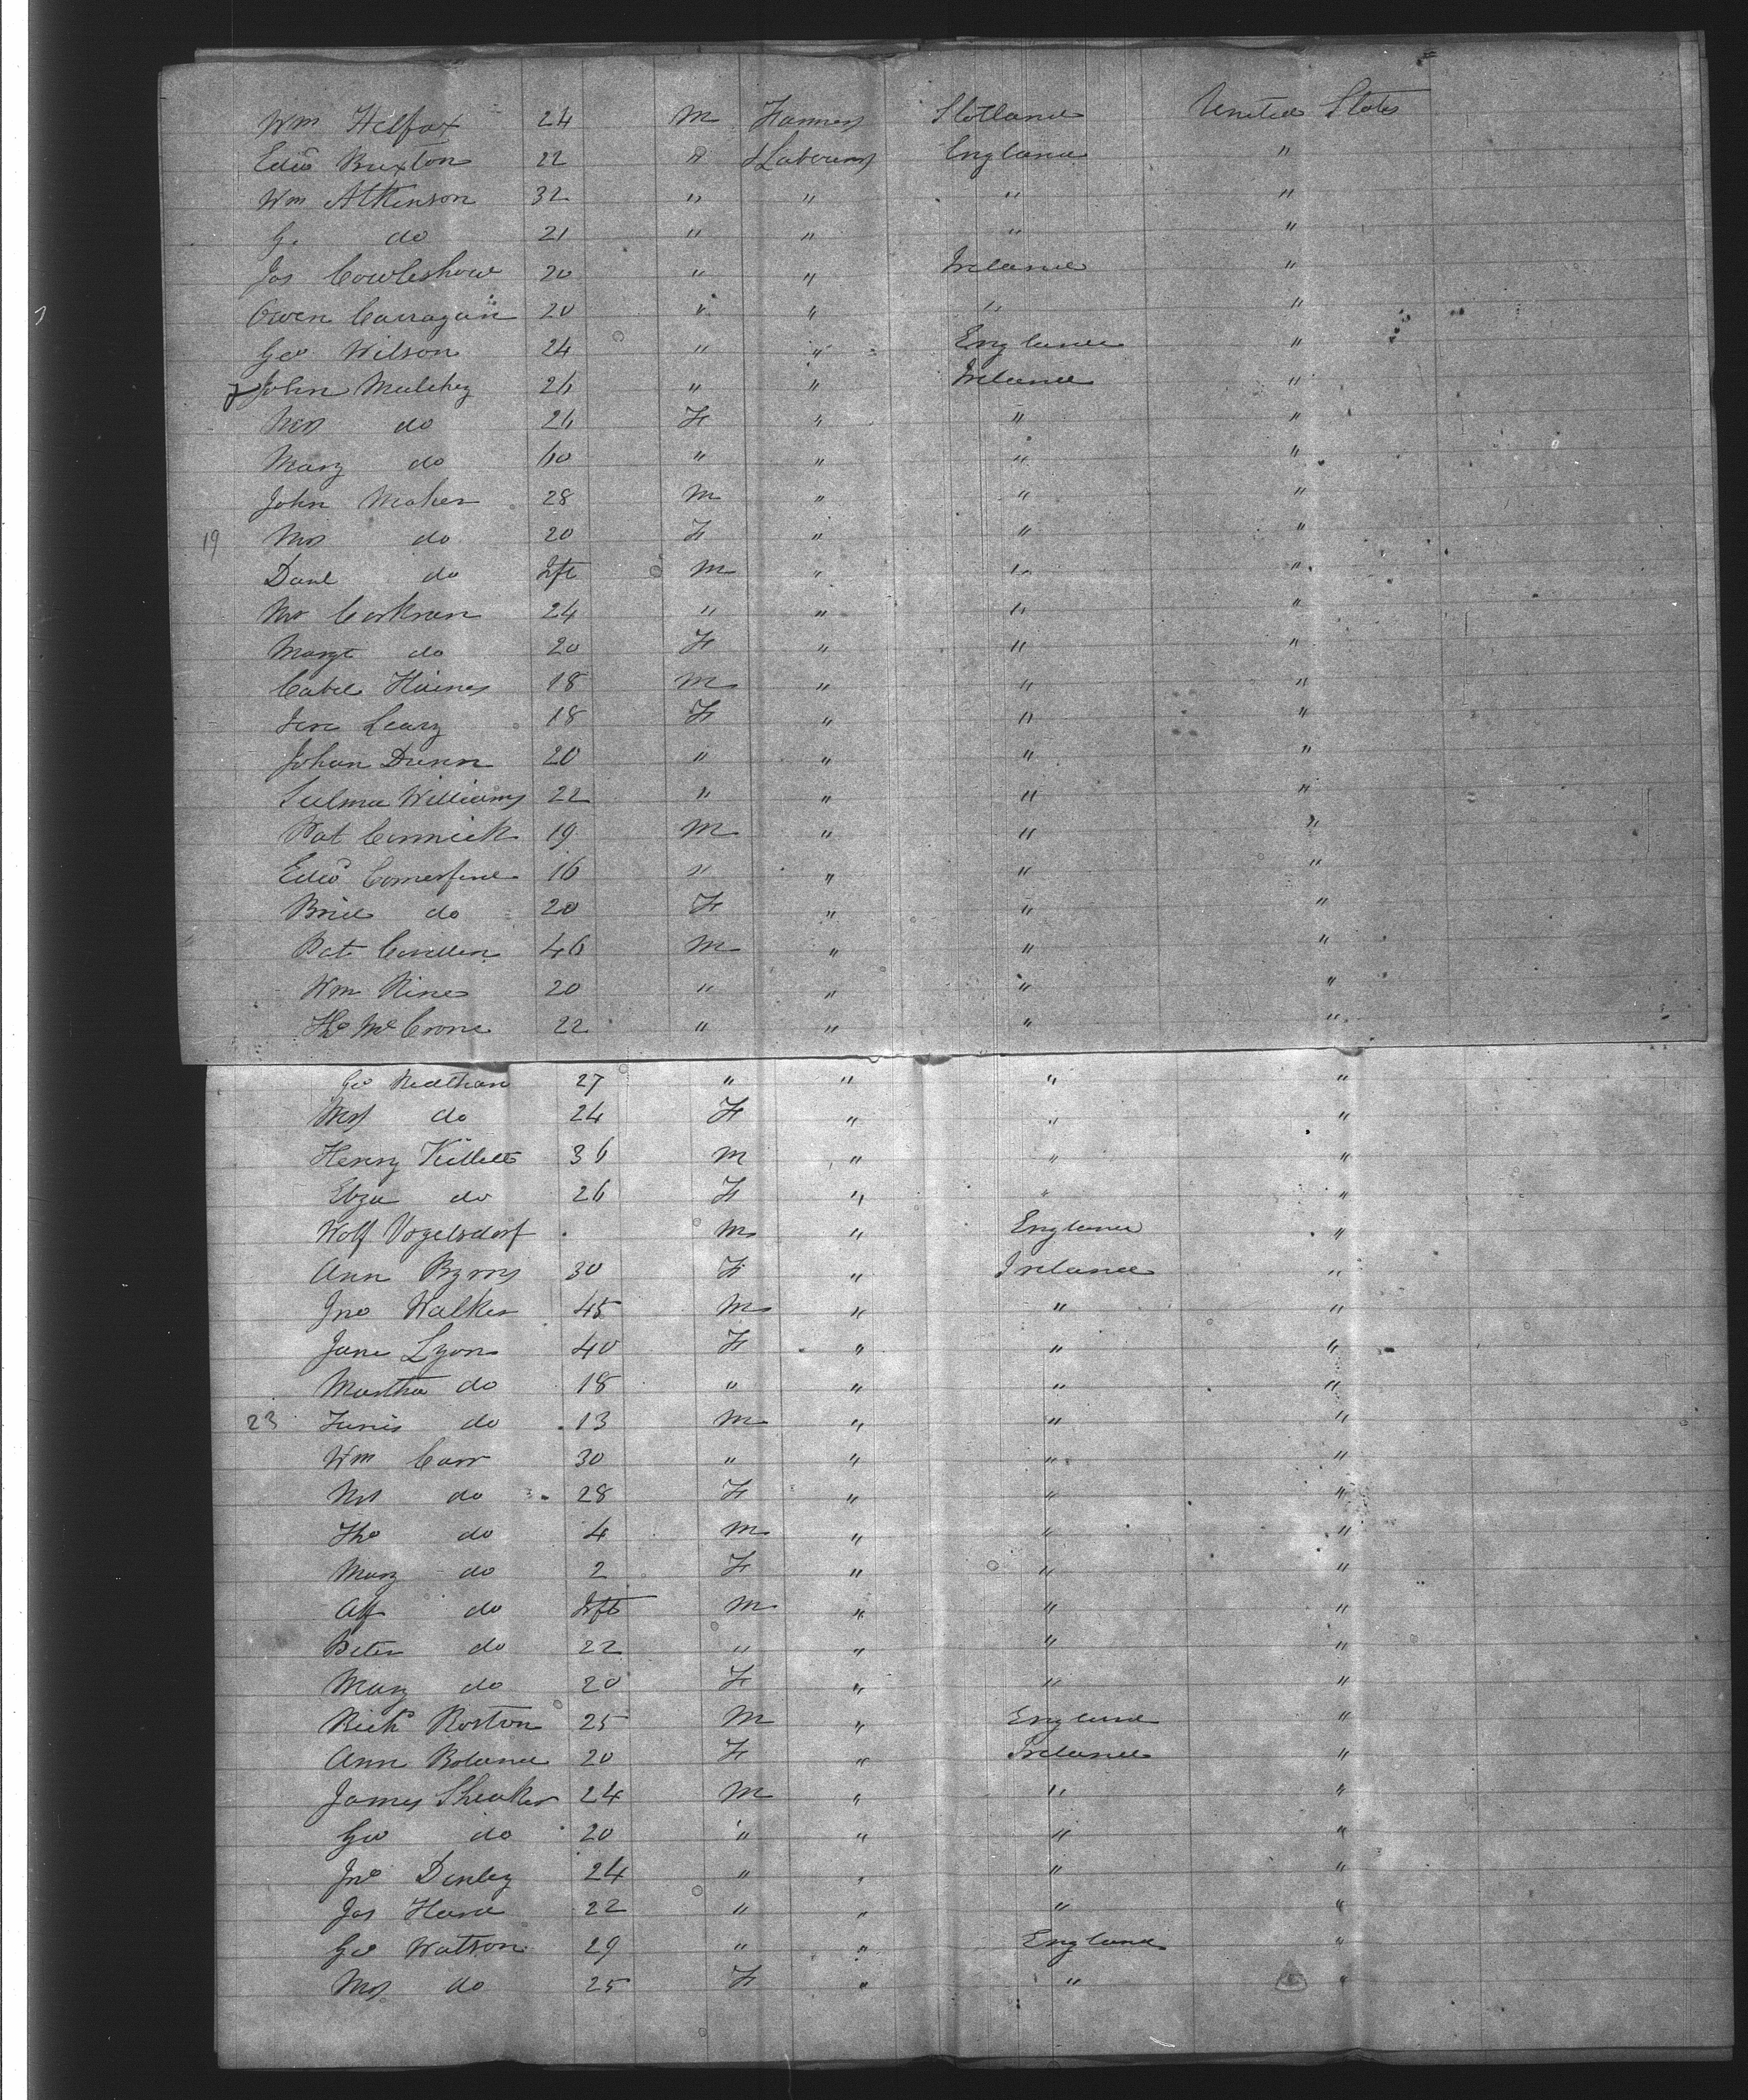 Wm Helfox 24 M Farmers Scotland United States
Edwd Buxton 22 " & Laborers England "
Wm Atkinson 32 " " " "
G. do 21 " " " "
Jas Cowleshow 20 " " Ireland "
Owen Carragan 20 " " " "
Geo Wilson 24 " " England "
John Mulchey 26 " " Ireland "
Mrs do 26 F " " "
Mary do 60 " " " "
John Maher 28 M " " "
19 Mrs do 20 F " " "
Danl do Inft M " " "
Mr Corkran 24 " " " "
Margt do 20 F " " "
Haines 18 M " " "
Leary 18 F " " "
Johan Dunn 20 " " " "
Williams 22 " " " "
Pat Cormick 19 M " " "
Edwd 16 " " " "
Brid do 20 F " " "
Pat 46 M " " "
Wm 20 " " " "
Tho McCrone 22 " " " "
Geo 27 " " " "
Mrs do 24 F " " "
Henry Killett 36 M " " "
Eliza do 26 F " " "
Wolf Vogelsdorf M " England "
Ann Byrns 30 F " Ireland "
Jno Walker 45 M " " "
Jane Lyons 40 F " " "
Martha do 18 " " " "
23 do 13 M " " "
Wm Carr 30 " " " "
Mrs do 28 F " " "
Tho do 4 M " " "
Mary do 2 F " " "
Alf do Inft M " " "
Peter do 22 " " " "
Mary do 20 F " " "
Richd Roston 25 M " England "
Ann Boland 20 F " Ireland "
James Sheaker 24 M " " "
Geo do 20 " " " "
Jno Denley 24 " " " "
Jas Hand 22 " " " "
Geo Watson 29 " " England "
Mrs do 25 F " " "